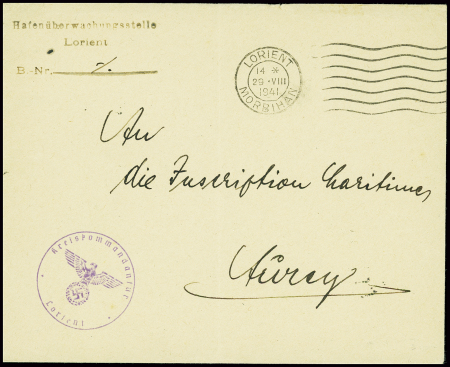 Hafenüberwachungsstelle
Lorient
B.-Nr.
LORIENT
14 *
29 · VIII
1941
MORBIHAN
An
die Inscription Maritime
Kreiskommandantur
Lorient